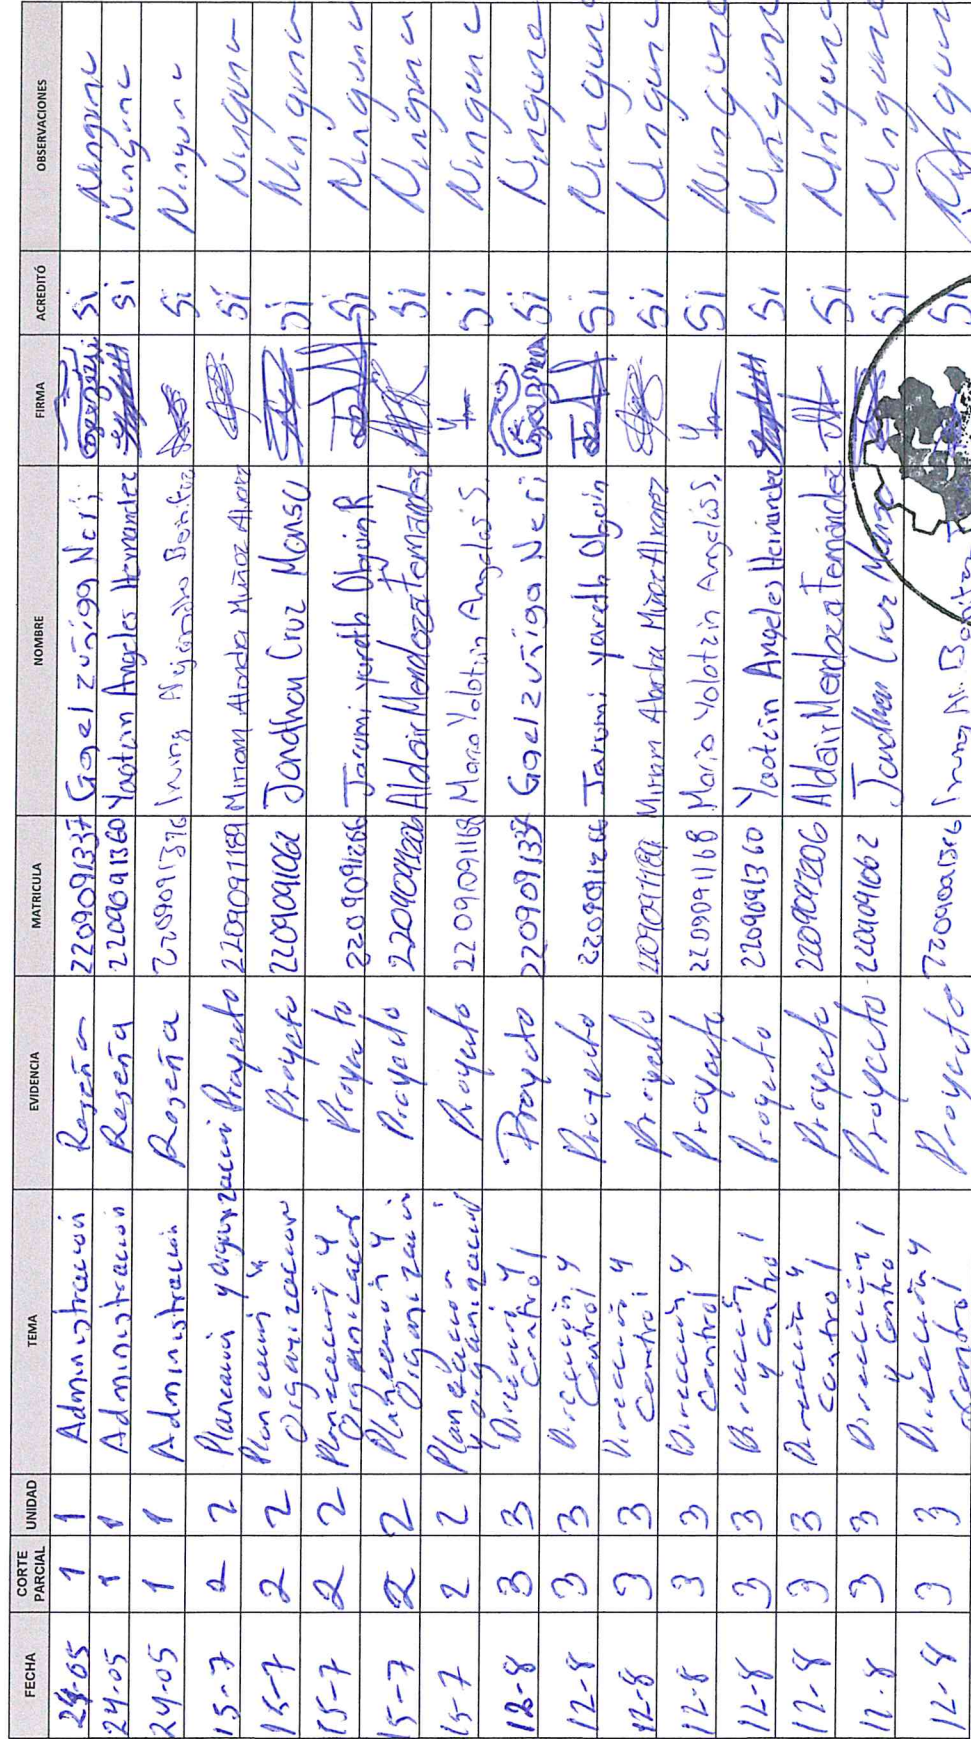 FECHA CORTE PARCIAL UNIDAD TEMA EVIDENCIA MATRICULA NOMBRE FIRMA ACREDITÓ OBSERVACIONES
24-05 1 1 Administración Reseña 2209091337 Gael Zuñiga Neri Si Ninguna
24-05 1 1 Administración Reseña 2209091360 Yaotzin Angeles Hernandez Si Ninguna
24-05 1 1 Administración Reseña 2209091396 Irving Alejandro Benitez Si Ninguna
15-7 2 2 Planeación y organización Proyecto 2209091189 Miriam Alondra Muñoz Alvarez Si Ninguna
15-7 2 2 Planeación y Organización Proyecto 2209091062 Jonathan Cruz Monsu Si Ninguna
15-7 2 2 Planeación y Organización Proyecto 2209091266 Jarumi yareth Olguin R Si Ninguna
15-7 2 2 Planeación y Organización Proyecto 2209091206 Aldair Mendoza Fernandez Si Ninguna
15-7 2 2 Planeación y organización Proyecto 2209091168 Mario Yolotzin Angeles S. Si Ninguna
12-8 3 3 Dirección y Control Proyecto 2209091337 Gael Zuñiga Neri Si Ninguna
12-8 3 3 Dirección y Control Proyecto 2209091266 Jarumi yareth Olguin Si Ninguna
12-8 3 3 Dirección y Control Proyecto 2209091189 Miriam Alondra Muñoz Alvarez Si Ninguna
12-8 3 3 Dirección y Control Proyecto 2209091168 Mario Yolotzin Angeles S. Si Ninguna
12-8 3 3 Dirección y Control Proyecto 2209091360 Yaotzin Angeles Hernandez Si Ninguna
12-8 3 3 Dirección y control Proyecto 2209091206 Aldair Mendoza Fernandez Si Ninguna
12-8 3 3 Dirección y Control Proyecto 2209091062 Jonathan Cruz Si Ninguna
12-8 3 3 Dirección y Control Proyecto Irving Al. Benitez Si Ninguna